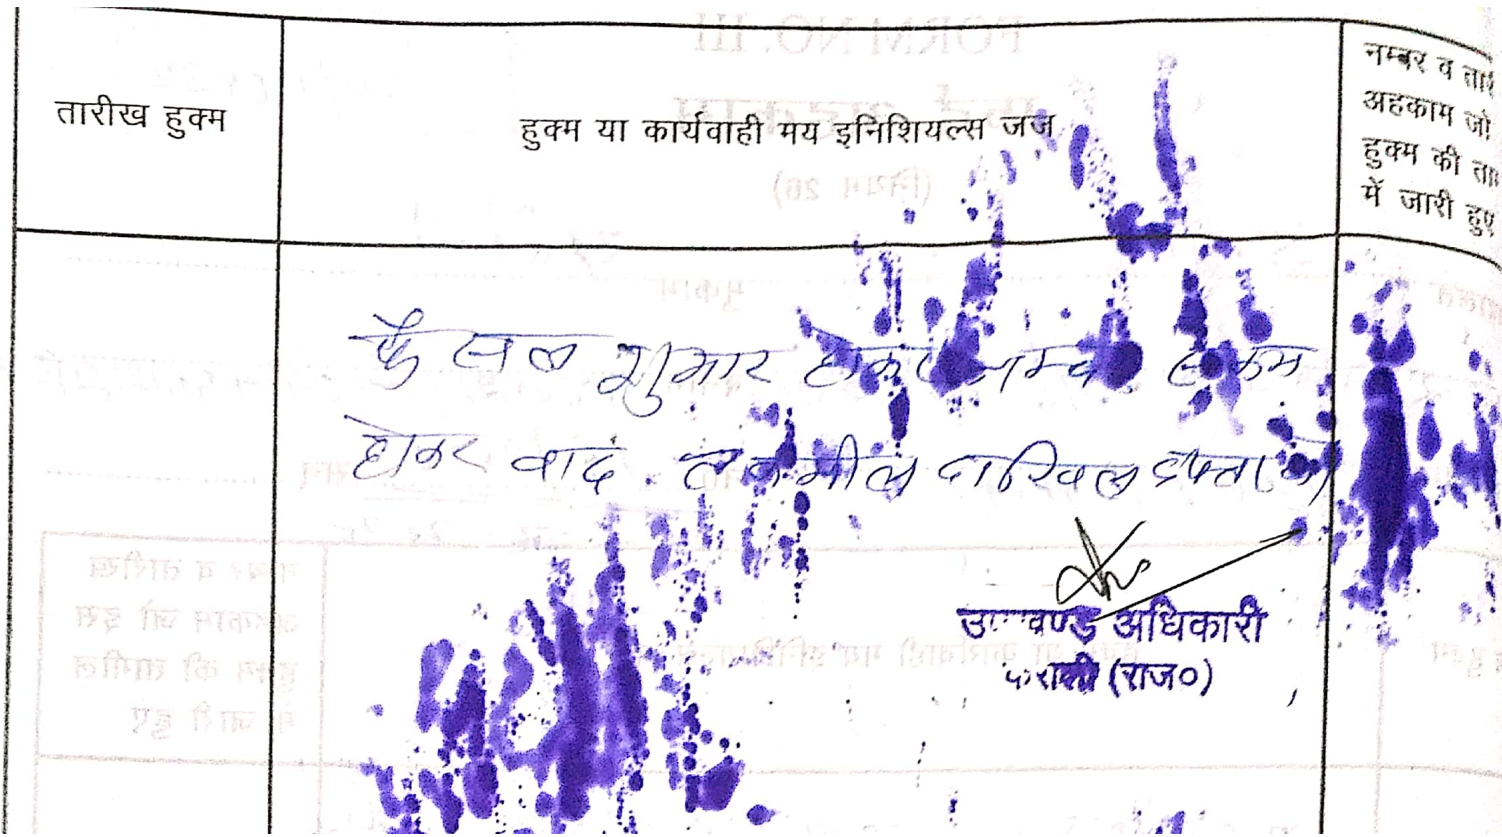 तारीख हुक्म
हुक्म या कार्यवाही मय इनिशियल्स जज
नम्बर व तारी
अहकाम जो
हुक्म की ता
में जारी हुए
फैसल शुमार होकर नम्बर से कम
होकर वाद तकमील दाखिल दफ्तर हो
अधिकारी
(राज०)